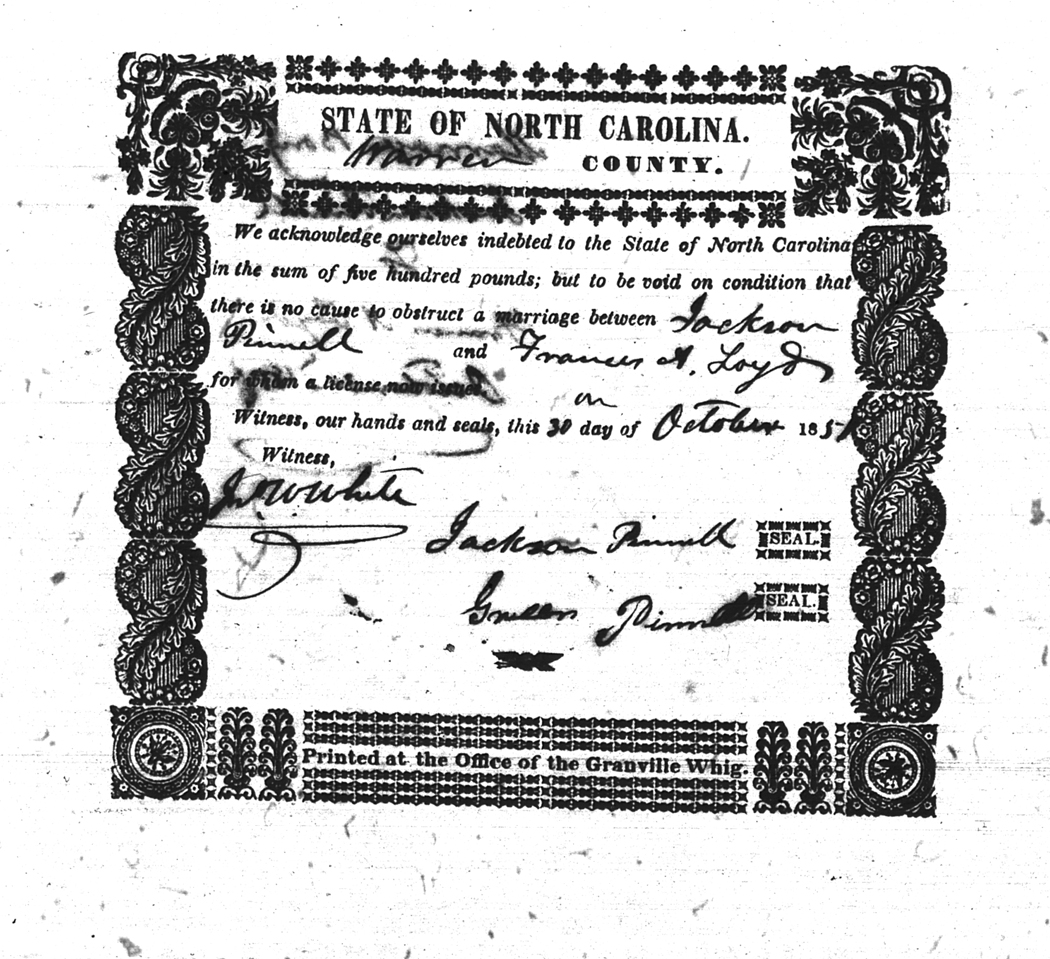 STATE OF NORTH CAROLINA.
Warren COUNTY.
We acknowledge ourselves indebted to the State of North Carolina
in the sum of five hundred pounds; but to be void on condition that
there is no cause to obstruct a marriage between Jackson
Pinnell and Frances A. Loyd
for whom a license now issued.
on
Witness, our hands and seals, this 30 day of October 185
Witness,
White
Jackson Pinnell SEAL.
Pinnell SEAL.
Printed at the Office of the Granville Whig.